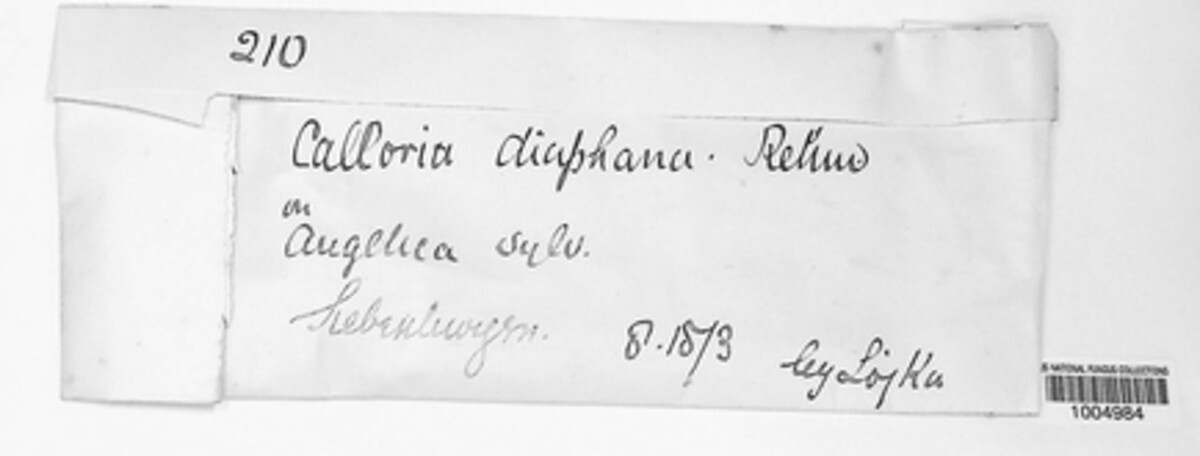 210
Calloria diaphana. Rehm
on
Angelica sylv.
Siebenburgen.
8.1873
leg Lojka
S NATIONAL FUNGUS COLLECTIONS
1004984